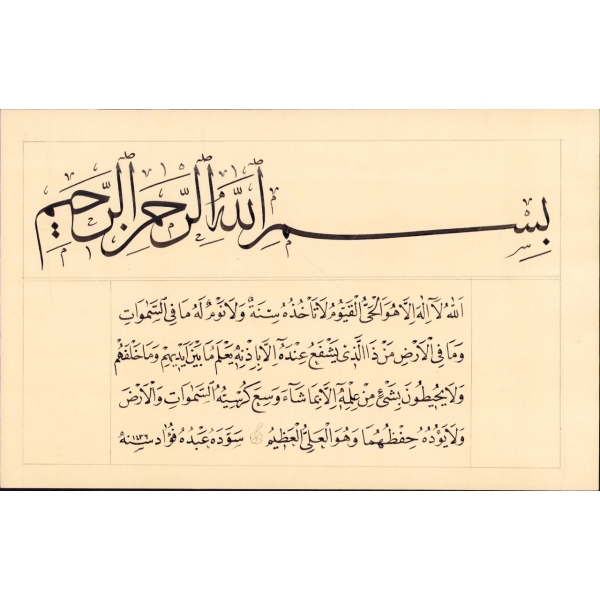 بِسْمِ اللّٰهِ الرَّحْمٰنِ الرَّحِيمِ
اَللّٰهُ لَآ اِلٰهَ اِلَّا هُوَ الْحَيُّ الْقَيُّومُ لَا تَأْخُذُهُ سِنَةٌ وَلَا نَوْمٌ لَهُ مَا فِي السَّمٰوَاتِ
وَمَا فِي الْاَرْضِ مَنْ ذَا الَّذِي يَشْفَعُ عِنْدَهُ اِلَّا بِاِذْنِهِ يَعْلَمُ مَا بَيْنَ اَيْدِيهِمْ وَمَا خَلْفَهُمْ
وَلَا يُحِيطُونَ بِشَيْءٍ مِنْ عِلْمِهِ اِلَّا بِمَا شَآءَ وَسِعَ كُرْسِيُّهُ السَّمٰوَاتِ وَالْاَرْضَ
وَلَا يَؤُدُهُ حِفْظُهُمَا وَهُوَ الْعَلِيُّ الْعَظِيمُ سَوَّدَهُ عَبْدُهُ فُؤَاد سنه ١٤٣٦